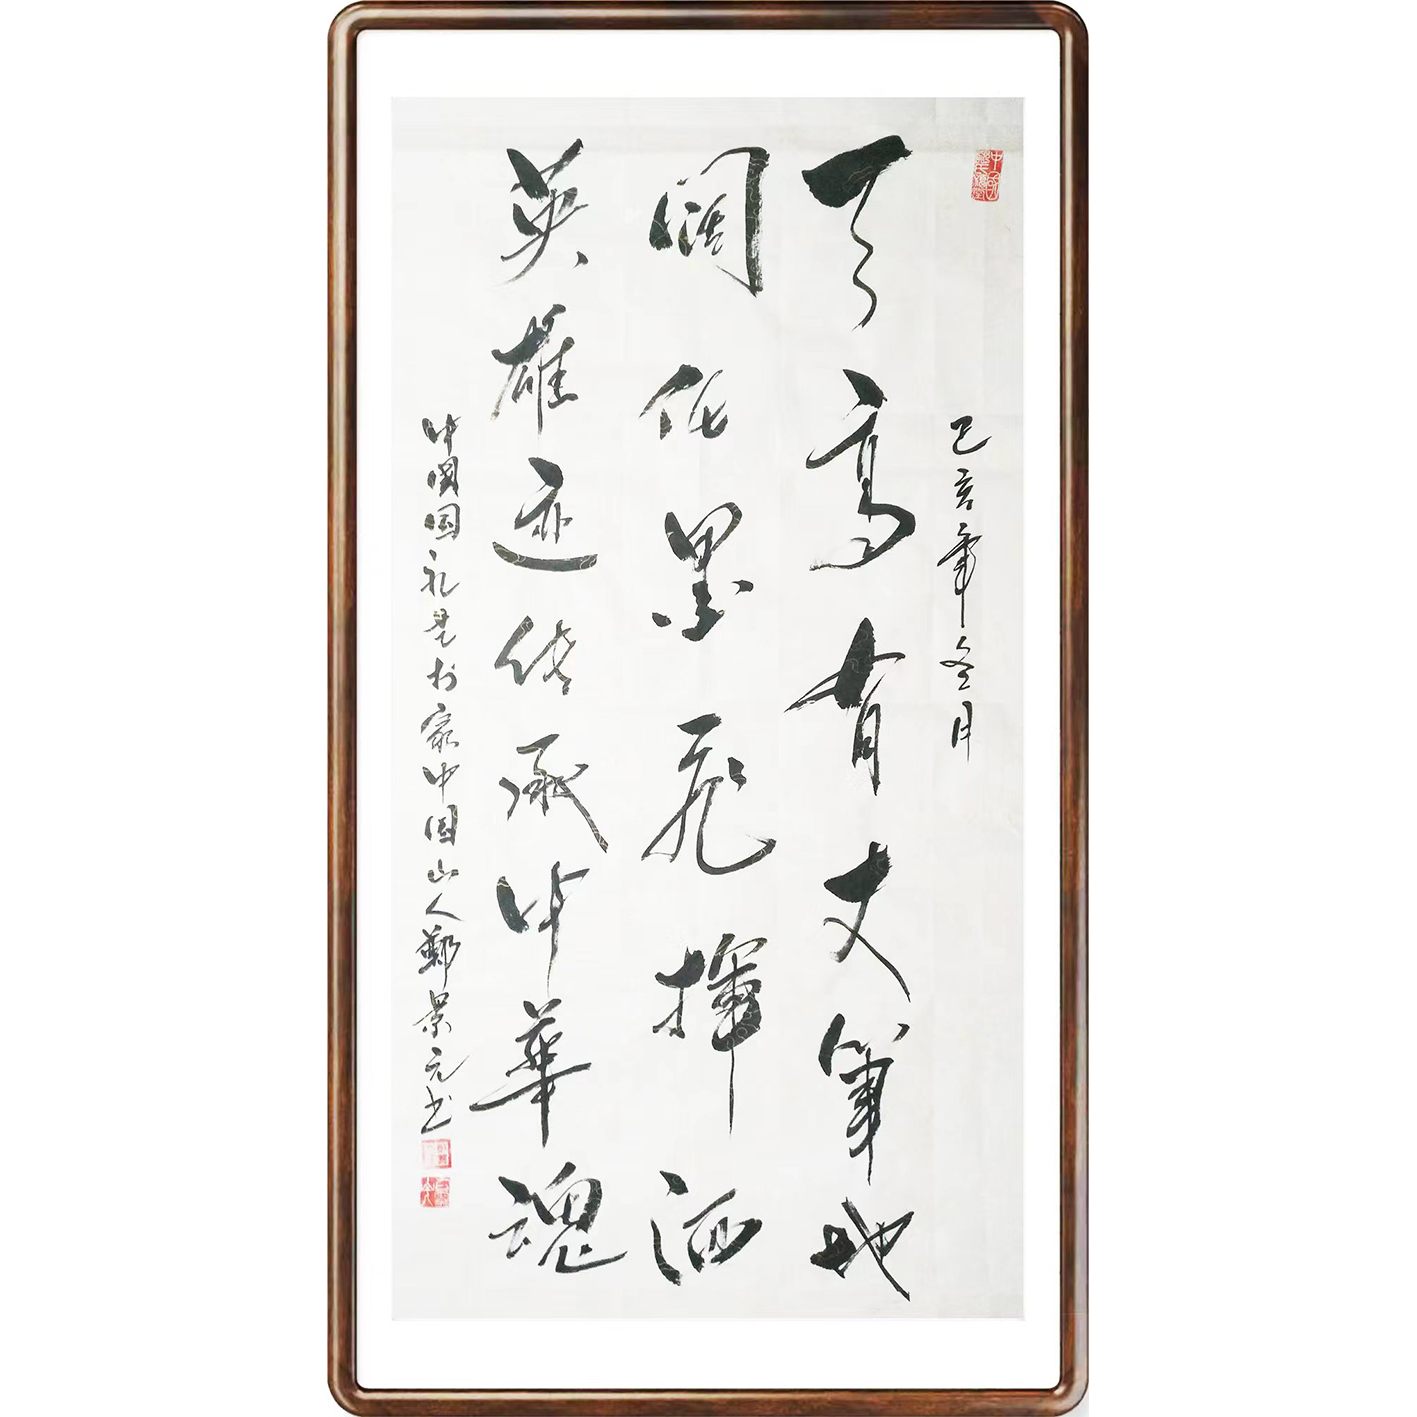 己亥年冬月
天高有丈笔地
阔任墨飞挥洒
英雄迹传承中华魂
中国国礼艺书家中国山人郑景元书